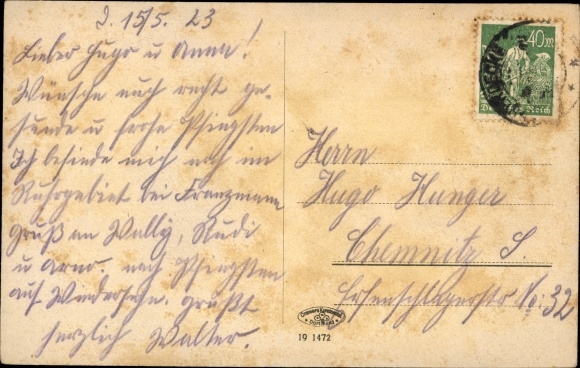 d. 15/5. 23
Lieber Hugo u Anna!
Wünsche euch recht ge-
sunde u frohe Pfingsten
Ich befinde mich noch im
Ruhrgebiet bei Franzmann
Gruß an Wally, Rudi
u Arno. nach Pfingsten
auf Wiedersehn. grüßt
herzlich Walter.
40 m
Reich
Herrn
Hugo Hunger
Chemnitz S.
No: 32
19 1472